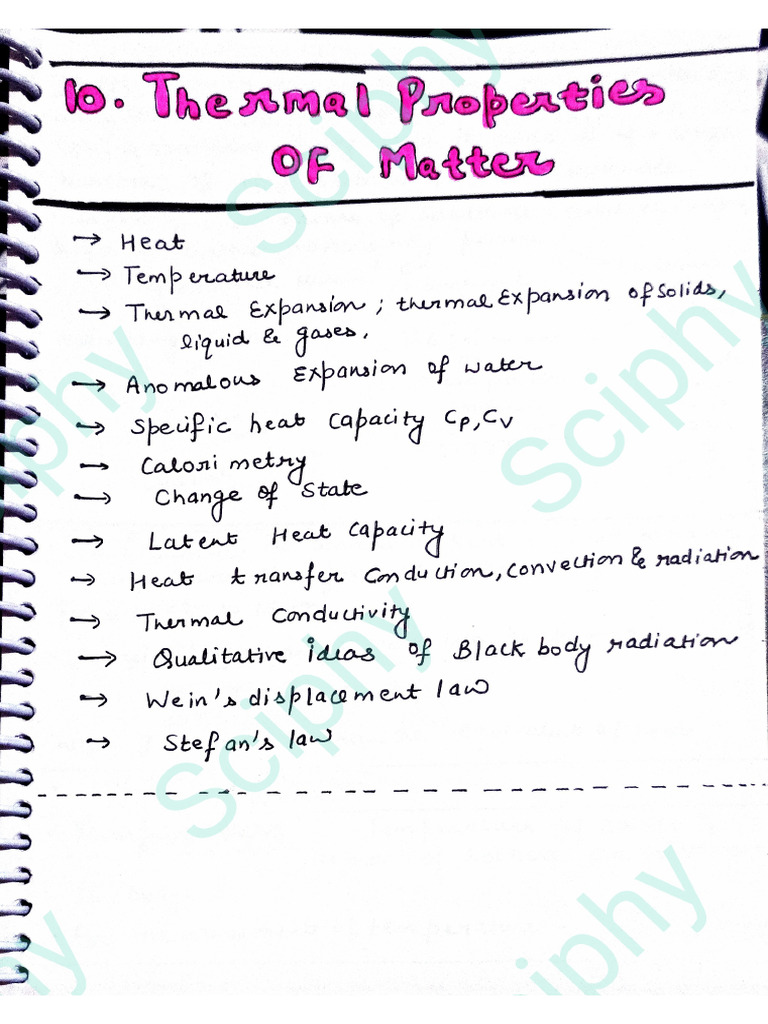 10. Thermal Properties
Of Matter
→ Heat
→ Temperature
→ Thermal Expansion ; thermal Expansion of Solids,
liquid & gases.
→ Anomalous Expansion of water
→ Specific heat Capacity Cp, Cv
→ Calorimetry
→ Change of State
→ Latent Heat Capacity
→ Heat transfer Conduction, Convection & radiation
→ Thermal Conductivity
→ Qualitative ideas of Black body radiation
→ Wein's displacement law
→ Stefan's law
Sciphy
Sciphy
Sciphy
Sciphy
Sciphy
Sciphy